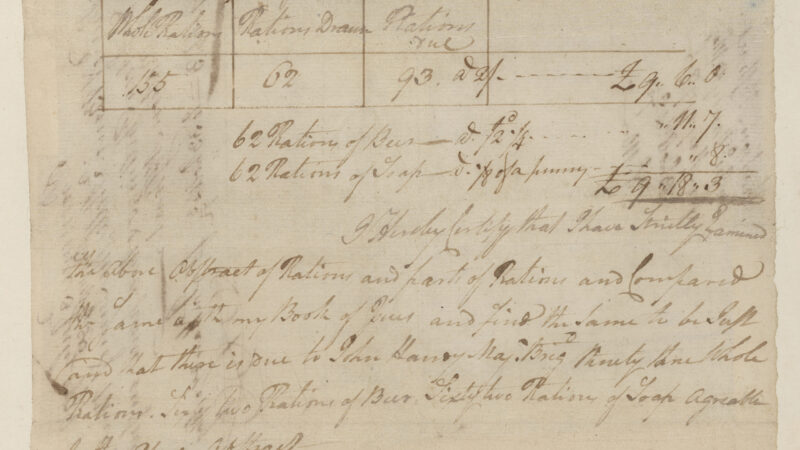 Whole Rations Rations Drawn Rations Due
155 62 93. a 2/. £ 9.. 6.. 0.
62 Rations of Beer — a 2 1/4 d .. 11.. 7.
62 Rations of Soap — a 1/8 of a penny .. 8.
£ 9.. 18.. 3
I Hereby Certify that I have Strictly Examined
the above Abstract of Rations and parts of Rations and Compared
the Same with my Book of and find the Same to be Just
and that there is due to John Maj Brigd Ninety three Whole
Rations. Sixty two Rations of Beer Sixty two Rations of Soap Agreable
Abstract